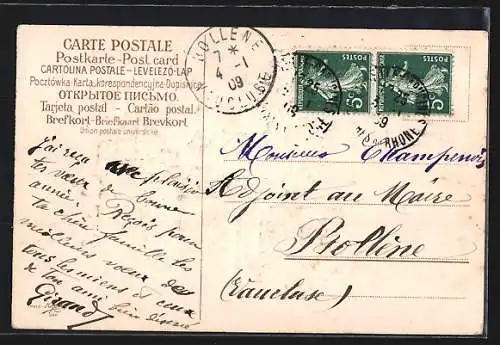 CARTE POSTALE
Postkarte - Post card
CARTOLINA POSTALE - LEVELEZŐ-LAP
Počtówka - Karta korespondencyjna - Dopisnica
ОТКРЫТОЕ ПИСЬМО.
Tarjeta postal - Cartão postal.
Brefkort - Briefkaart - Brevkort.
Union postale universelle.
BOLLENE
7 *
4 - 1
09
VAUCLUSE
5c
5c
RHONE
j'ai reçu avec plaisir
tes vœux de bonne
année. Reçois pour
ta chère famille les
meilleurs vœux de
tous les miens et ceux
de ton ami bien dévoué
Girard
Monsieur Champenois
Adjoint au Maire
Bollène
(Vaucluse)